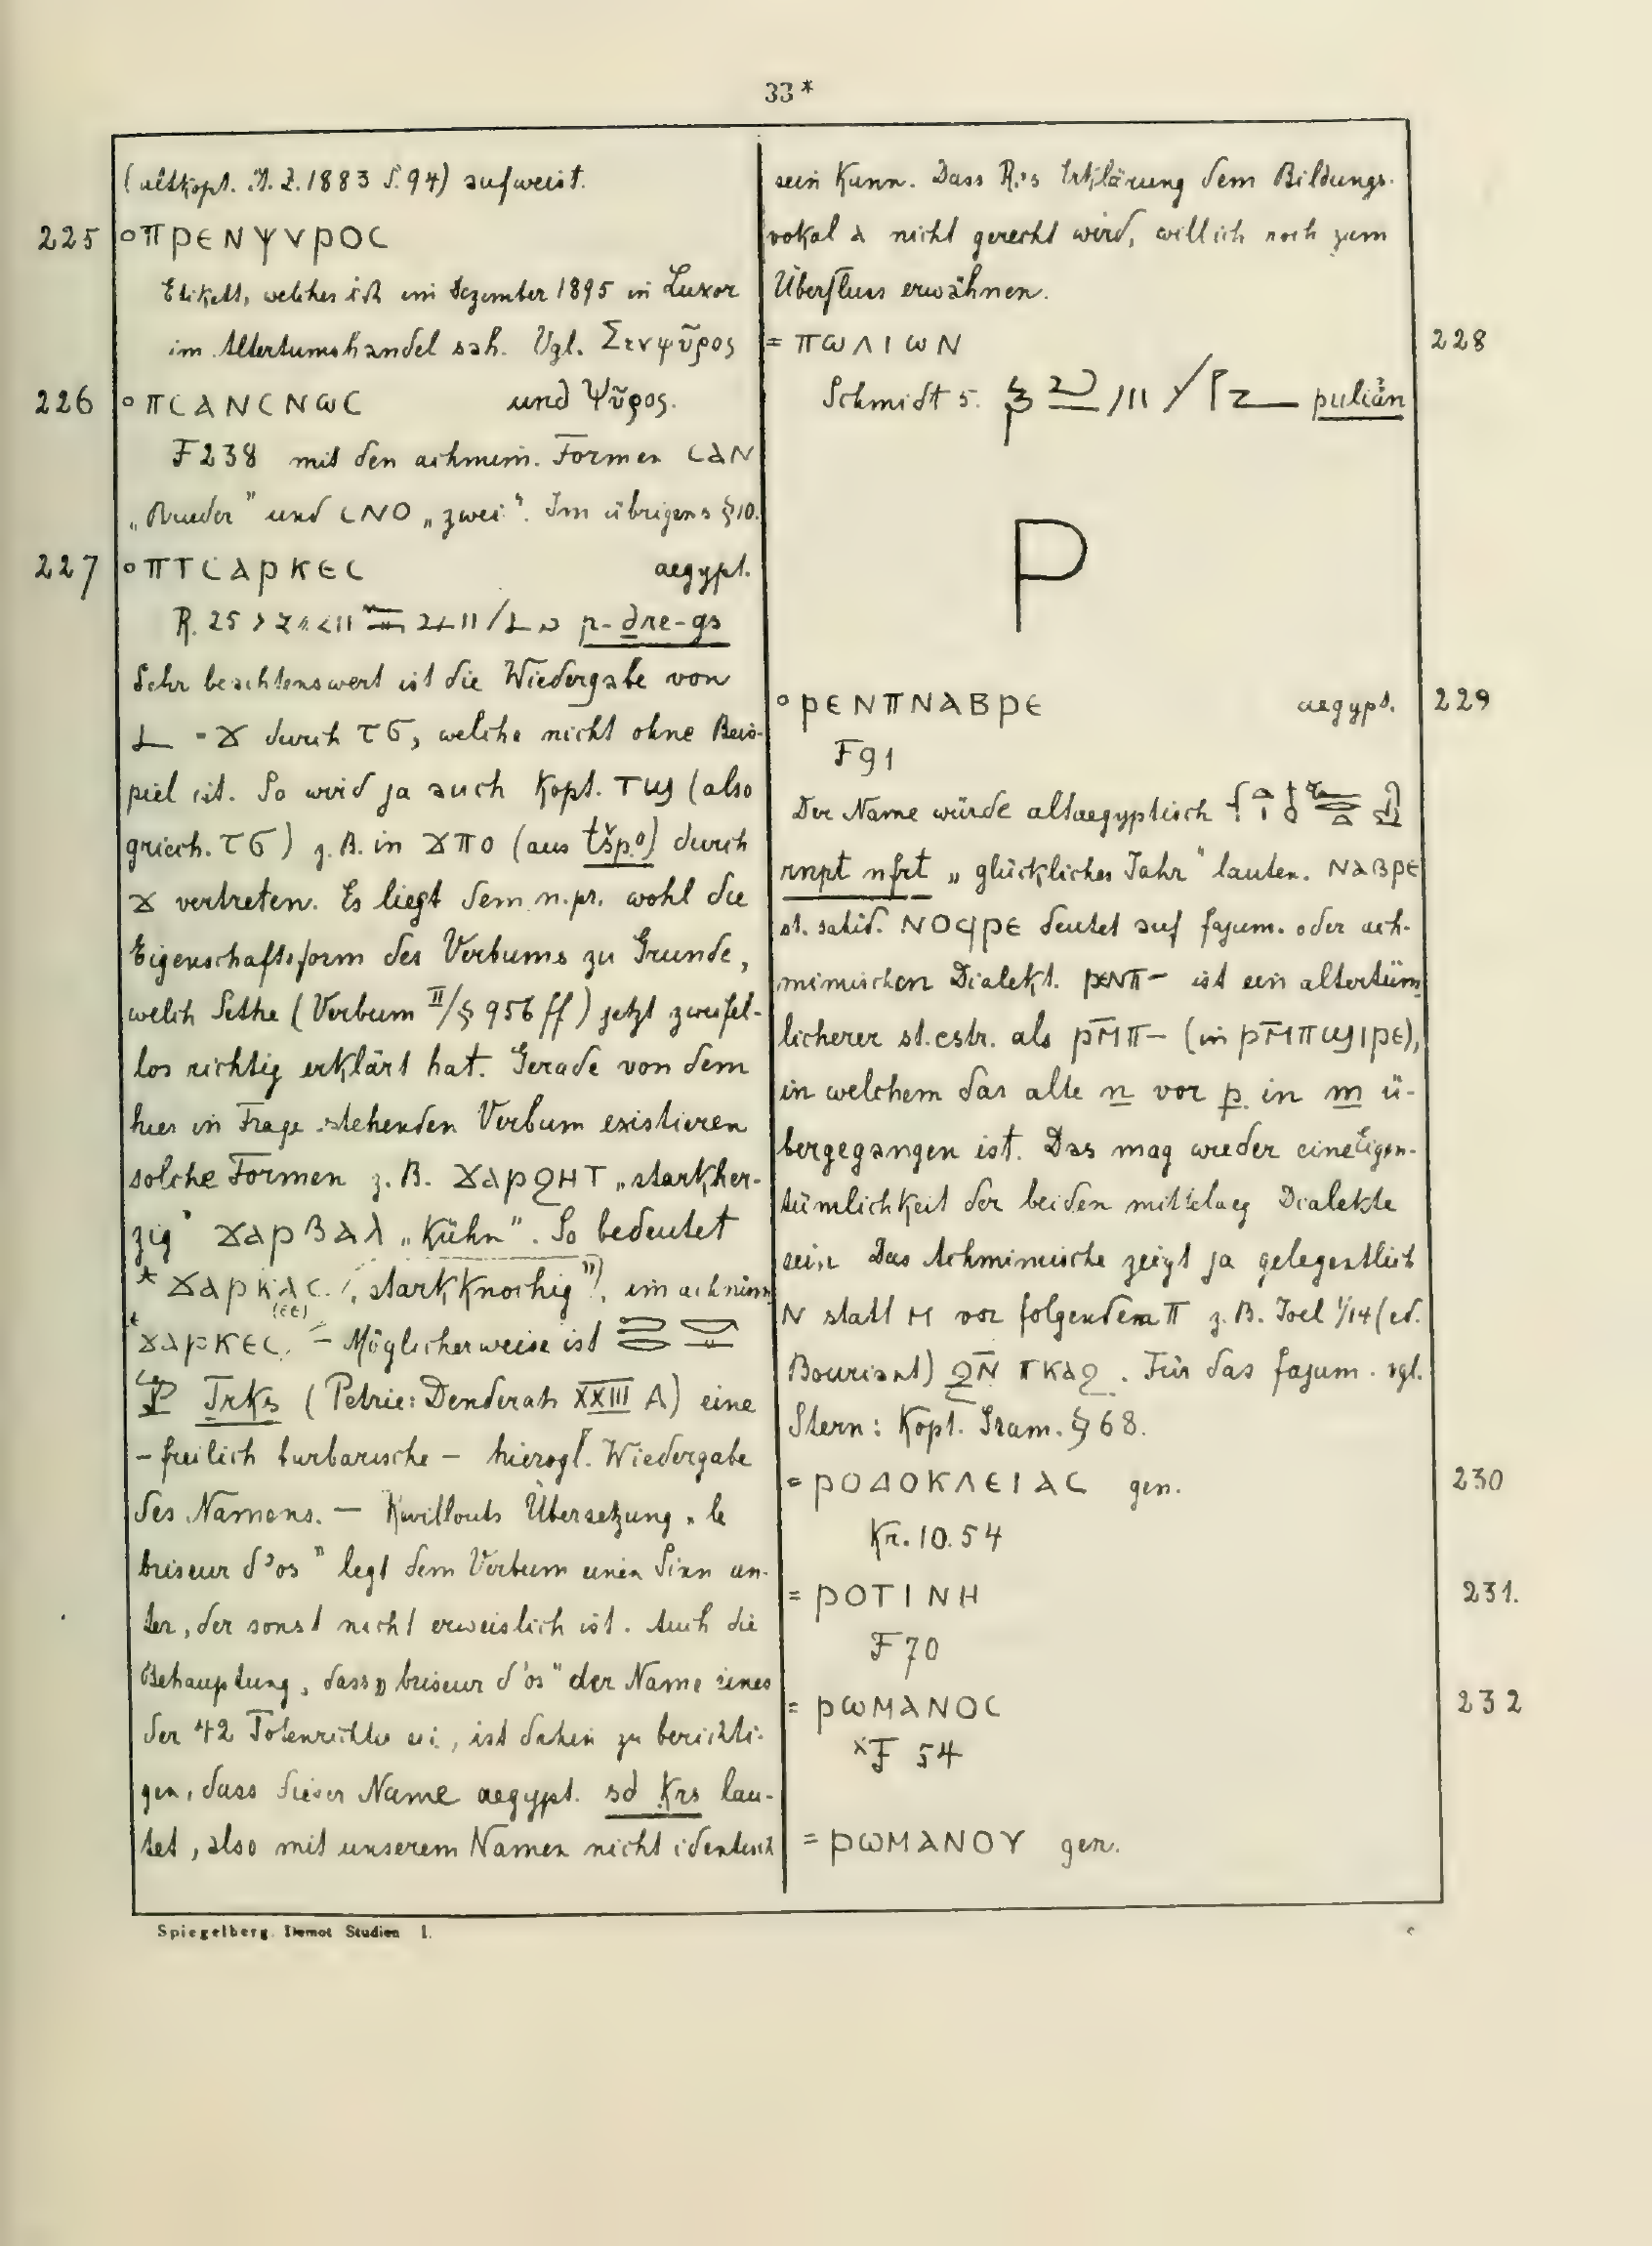 33*
(altkopt. Ä. Z. 1883 S. 94) aufweist.
225 °ΠΡΕΝΨΥΡΟC
Etikett, welches ich im Dezember 1895 in Luxor
im Altertumshandel sah. Vgl. Σενψῦρος
und Ψῦρος.
226 °ΠCΑΝCΝΩC
F 238 mit den achmim. Formen CΑΝ
„Bruder" und CΝΟ „zwei". Im übrigens § 10.
227 °ΠΤCΑΡΚΕC aegypt.
R. 25 p-ḏre-gs
Sehr beachtenswert ist die Wiedergabe von
= ϫ durch τσ, welche nicht ohne Beis-
piel ist. So wird ja auch kopt. ⲧϣ (also
griech. τσ) z. B. in ϫⲡⲟ (aus tšpo) durch
ϫ vertreten. Es liegt dem n. pr. wohl die
Eigenschaftsform des Verbums zu Grunde,
welch Sethe (Verbum II/§ 956 ff) jetzt zweifel-
los richtig erklärt hat. Gerade von dem
hier in Frage stehenden Verbum existieren
solche Formen z. B. ϫⲁⲣϩⲏⲧ „starkher-
zig" ϫⲁⲣⲃⲁⲗ „kühn". So bedeutet
* ϫⲁⲣⲕⲁⲥ „starkknochig", im achmim
(ⲉⲉ)
* ϫⲁⲣⲕⲉⲥ. — Möglicherweise ist
Trks (Petrie: Denderah XXIII A) eine
— freilich barbarische — hierogl. Wiedergabe
des Namens. — Revillouts Übersetzung „le
briseur d'os" legt dem Verbum einen Sinn un-
ter, der sonst nicht erweislich ist. Auch die
Behauptung, dass „briseur d'os" der Name eines
der 42 Totenrichter sei, ist dahin zu berichti-
gen, dass dieser Name aegypt. sd krs lau-
tet, also mit unserem Namen nicht identisch
sein kann. Dass R.'s Erklärung dem Bildungs-
vokal ⲁ nicht gerecht wird, will ich noch zum
Überfluss erwähnen.
= ΠΩΛΙΩΝ 228
Schmidt 5. puliản
P
°ΡΕΝΠΝΑΒΡΕ aegypt. 229
F 91
Der Name würde altaegyptisch
rnpt nfrt „glückliches Jahr" lauten. ⲛⲁⲃⲣⲉ
st. sahid. ⲛⲟϥⲣⲉ deutet auf fajum. oder ach-
mimischen Dialekt. ⲣⲉⲛⲡ- ist ein altertüm
licherer st. cstr. als ⲣⲙ̄ⲡ- (in ⲣⲙ̄ⲡϣⲓⲣⲉ),
in welchem das alte n vor p in m ü-
bergegangen ist. Das mag wieder eine Eigen-
tümlichkeit der beiden mittelaeg Dialekte
sein. Das Achmimische zeigt ja gelegentlich
ⲛ statt ⲙ vor folgendem ⲡ z. B. Joel 1/14 (ed.
Bouriant) ϩⲛ̄ ⲡⲕⲁϩ. Für das fajum. vgl.
Stern: Kopt. Gram. § 68.
= ΡΟΔΟΚΛΕΙΑC gen. 230
Kr. 10. 54
= ΡΟΤΙΝΗ 231.
F 70
= ΡΩΜΑΝΟC 232
×F 54
= ΡΩΜΑΝΟΥ gen.
Spiegelberg. Demot Studien I.
c